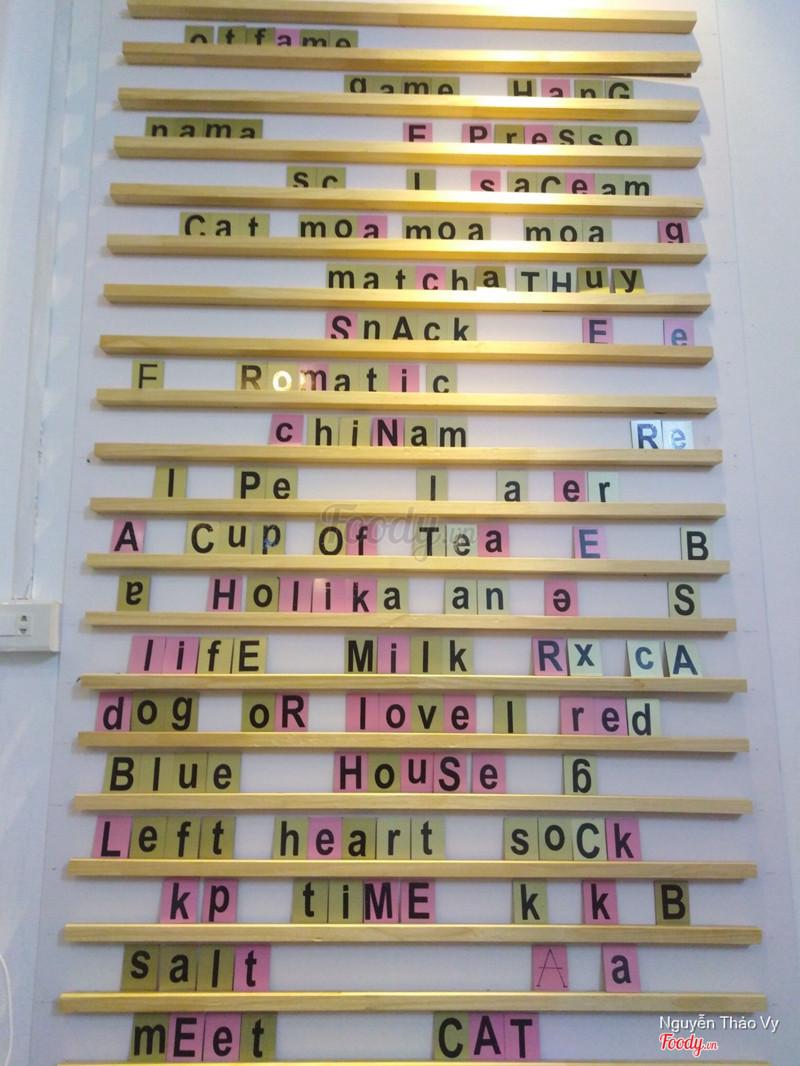 otfame
game HanG
nama E Presso
sc l saceam
Cat moa moa moa g
matcha THuy
SnAck E e
E Romatic
chiNam Re
l Pe l a er
A Cup Of Tea E B
e Holika an e S
lifE Milk Rx cA
dog oR love l red
Blue HouSe 6
Left heart soCk
kp tiME k k B
salt A a
mEet CAT
Foody.vn
Nguyễn Thảo Vy
Foody.vn